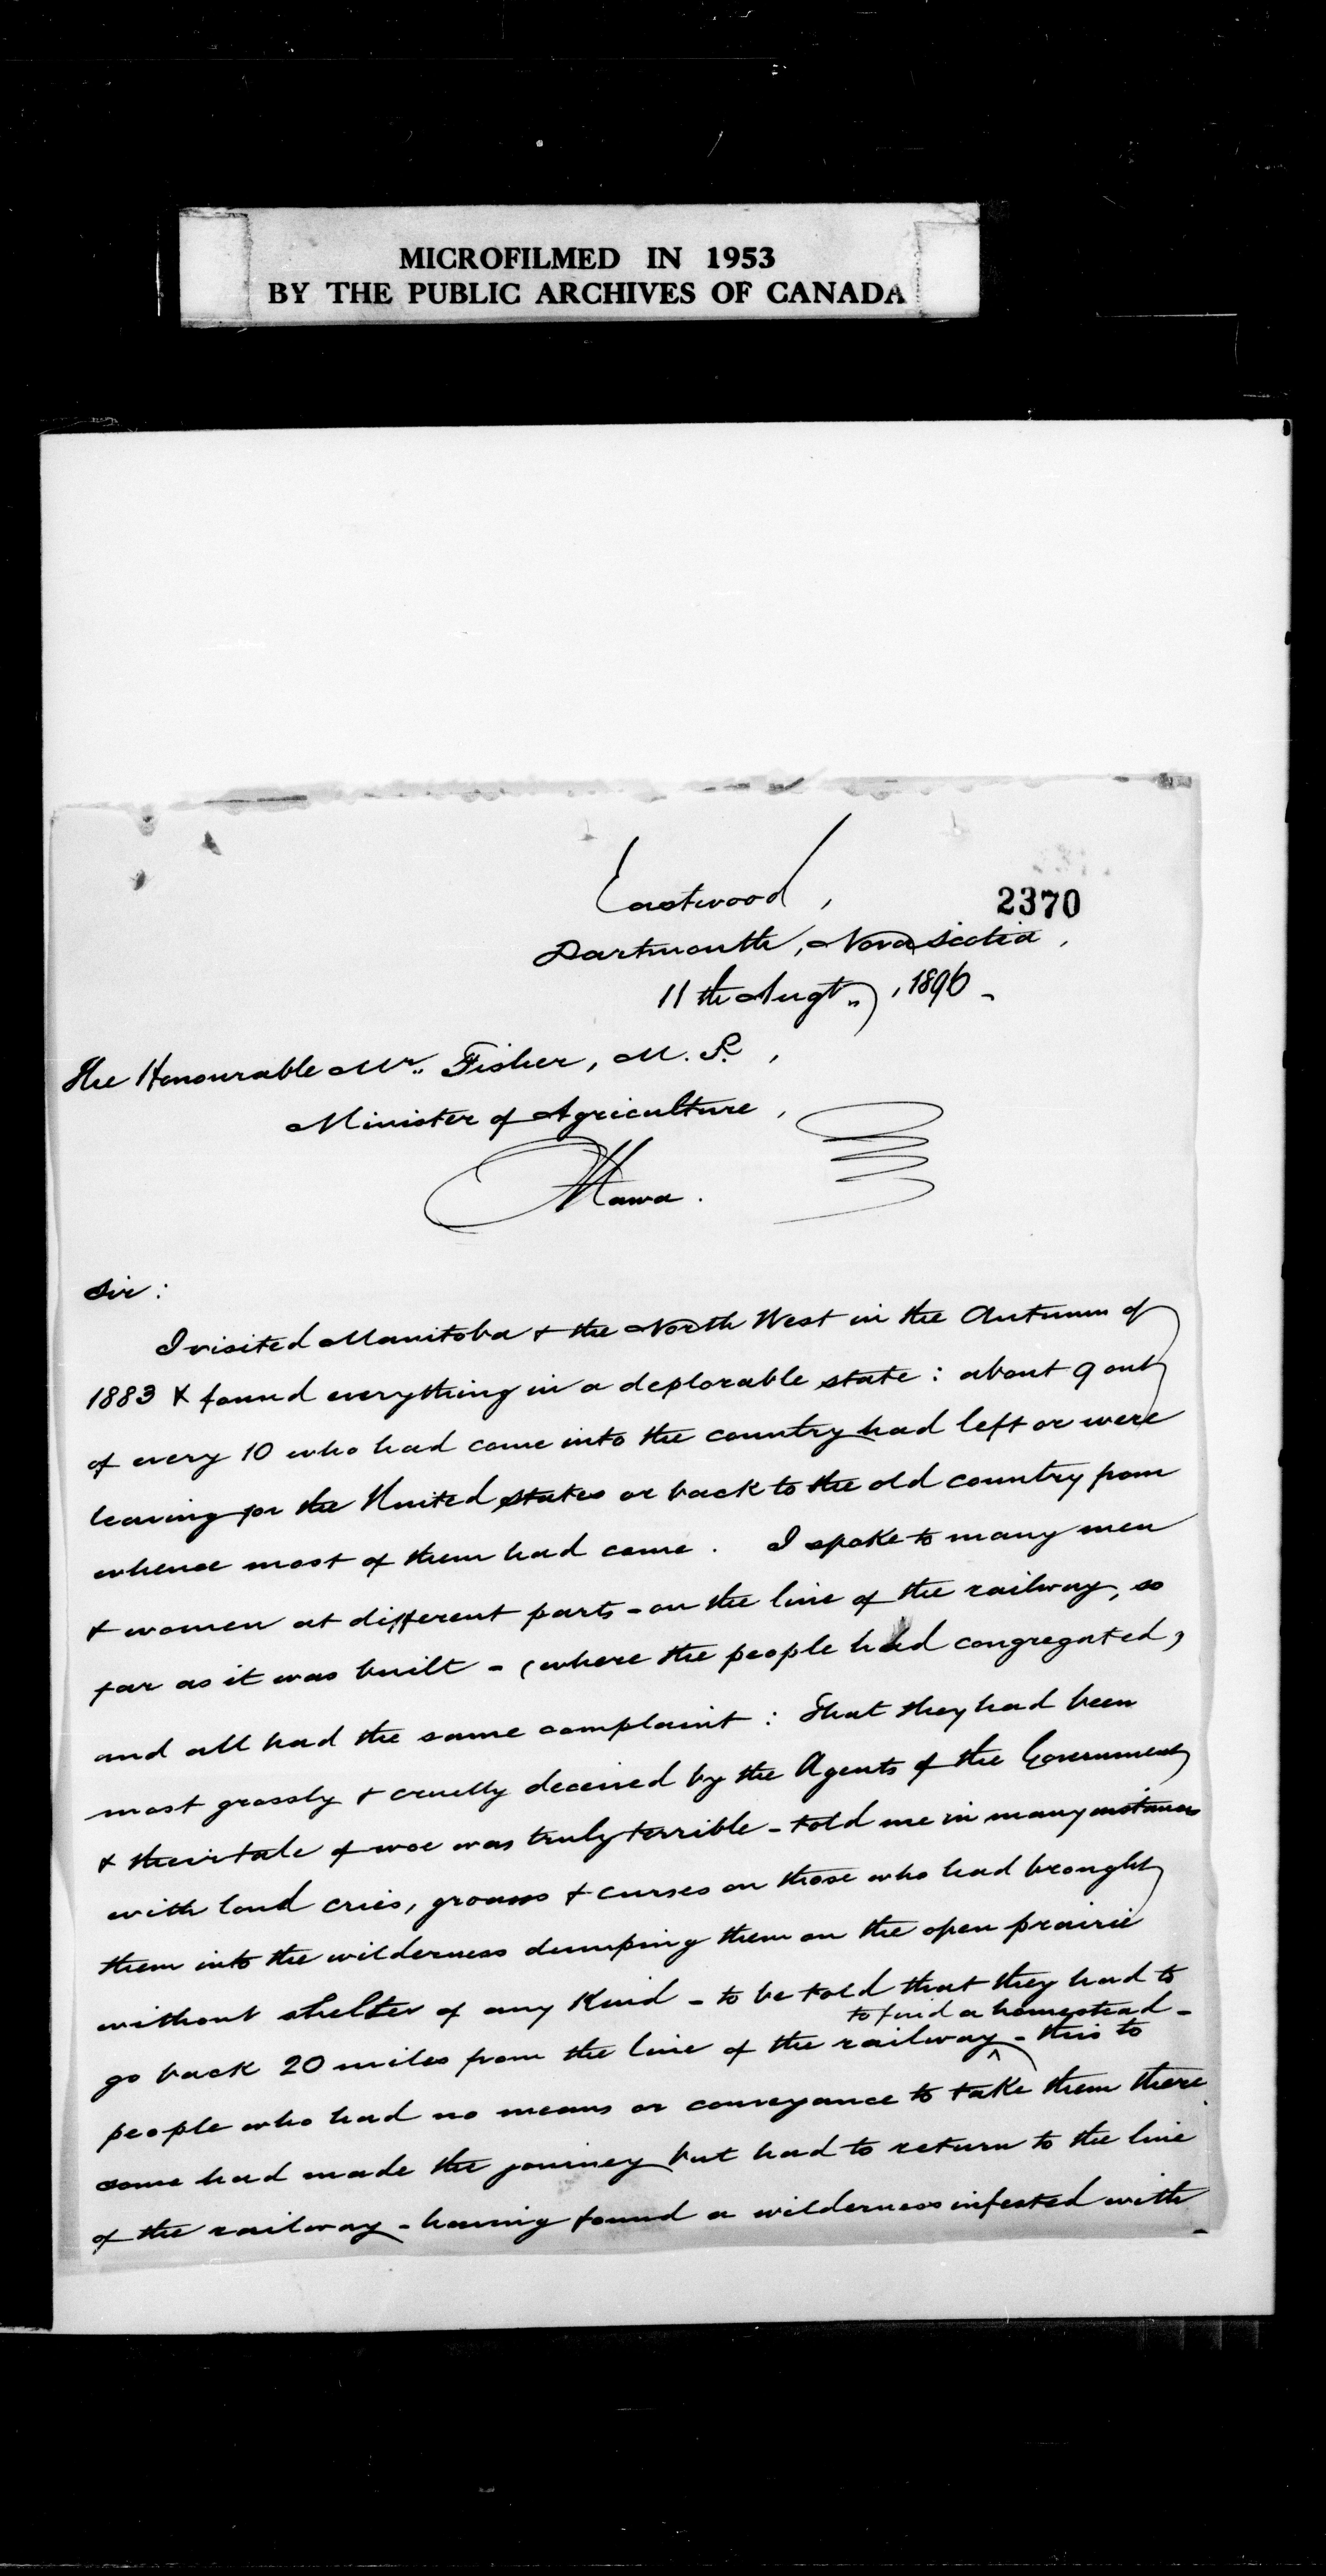 MICROFILMED IN 1953
BY THE PUBLIC ARCHIVES OF CANADA
Eastwood,
2370
Dartmouth, Nova Scotia,
11th Augt., 1896-
The Honourable Mr. Fisher, M.P.,
Minister of Agriculture,
Ottawa.
Sir:
I visited Manitoba & the North West in the Autumn of
1883 & found everything in a deplorable state: about 9 out
of every 10 who had come into the country had left or were
leaving for the United States or back to the old country from
whence most of them had come. I spoke to many men
& women at different parts - on the line of the railway, so
far as it was built - (where the people had congregated)
and all had the same complaint: That they had been
most grossly & cruelly deceived by the Agents of the Government
& their tale of woe was truly terrible - told me in many instances
with loud cries, groans & curses on those who had brought
them into the wilderness dumping them on the open prairie
without shelter of any kind - to be told that they had to
to find a homestead -
go back 20 miles from the line of the railway ^ - this to
people who had no means or conveyance to take them there.
some had made the journey but had to return to the line
of the railway - having found a wilderness infested with